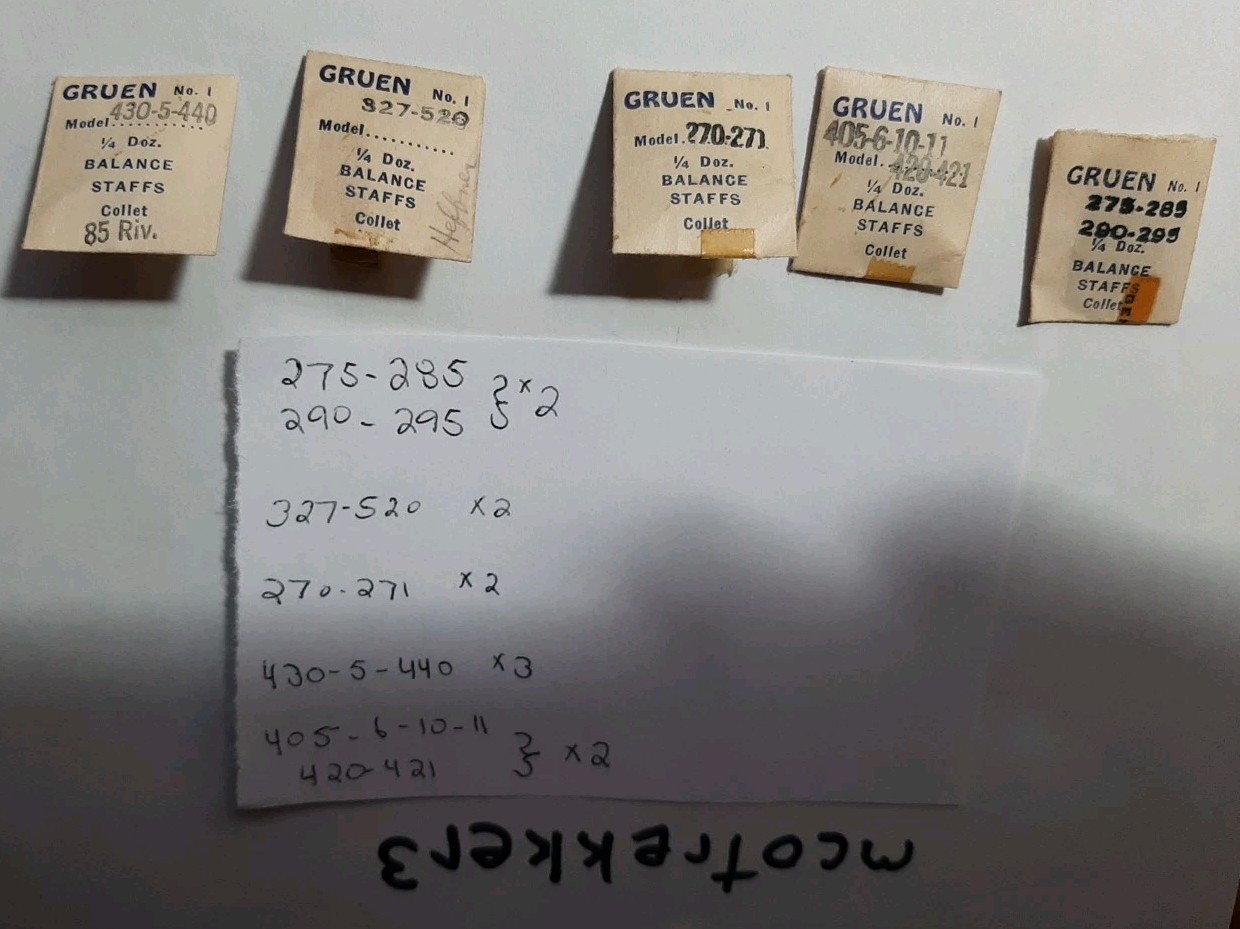 GRUEN No. 1
430-5-440
Model
1/4 Doz.
BALANCE
STAFFS
Collet
85 Riv.
GRUEN No. 1
327-520
Model
1/4 Doz.
BALANCE
STAFFS
Collet
Heffner
GRUEN No. 1
Model 270-271
1/4 Doz.
BALANCE
STAFFS
Collet
GRUEN No. 1
405-6-10-11
Model 420-421
1/4 Doz.
BALANCE
STAFFS
Collet
GRUEN No. 1
275-285
290-295
1/4 Doz.
BALANCE
STAFFS
Collet
275-285
290-295 } x2
327-520 x2
270-271 x2
430-5-440 x3
405-6-10-11
420-421 } x2
mcotrekker3